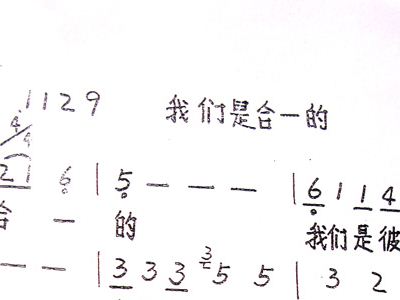 1129 我们是合一的
4/4
21 6 | 5 — — — | 6 1 1 4
合 一 的 我们是彼
— — | 3 3 3 3 5 5 | 3 2